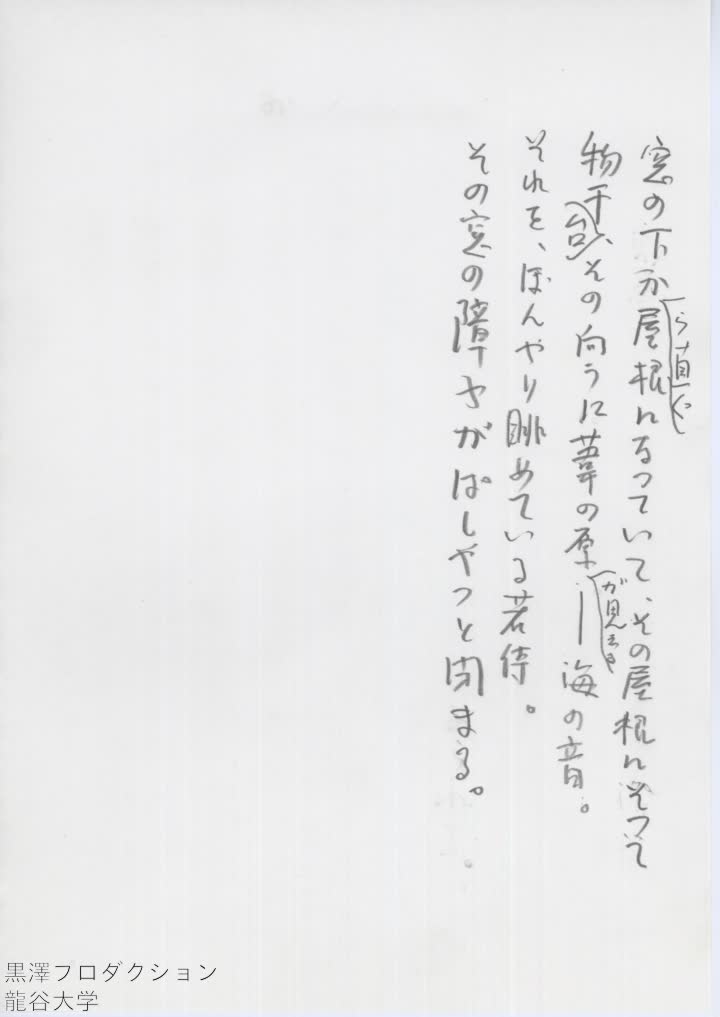 窓の下から直ぐ屋根になっていて、その屋根にそって
物干台、その向うに葦の原が見え―海の音。
それを、ぼんやり眺めている若侍。
その窓の障子がぱしやつと閉まる。
黒澤プロダクション
龍谷大学